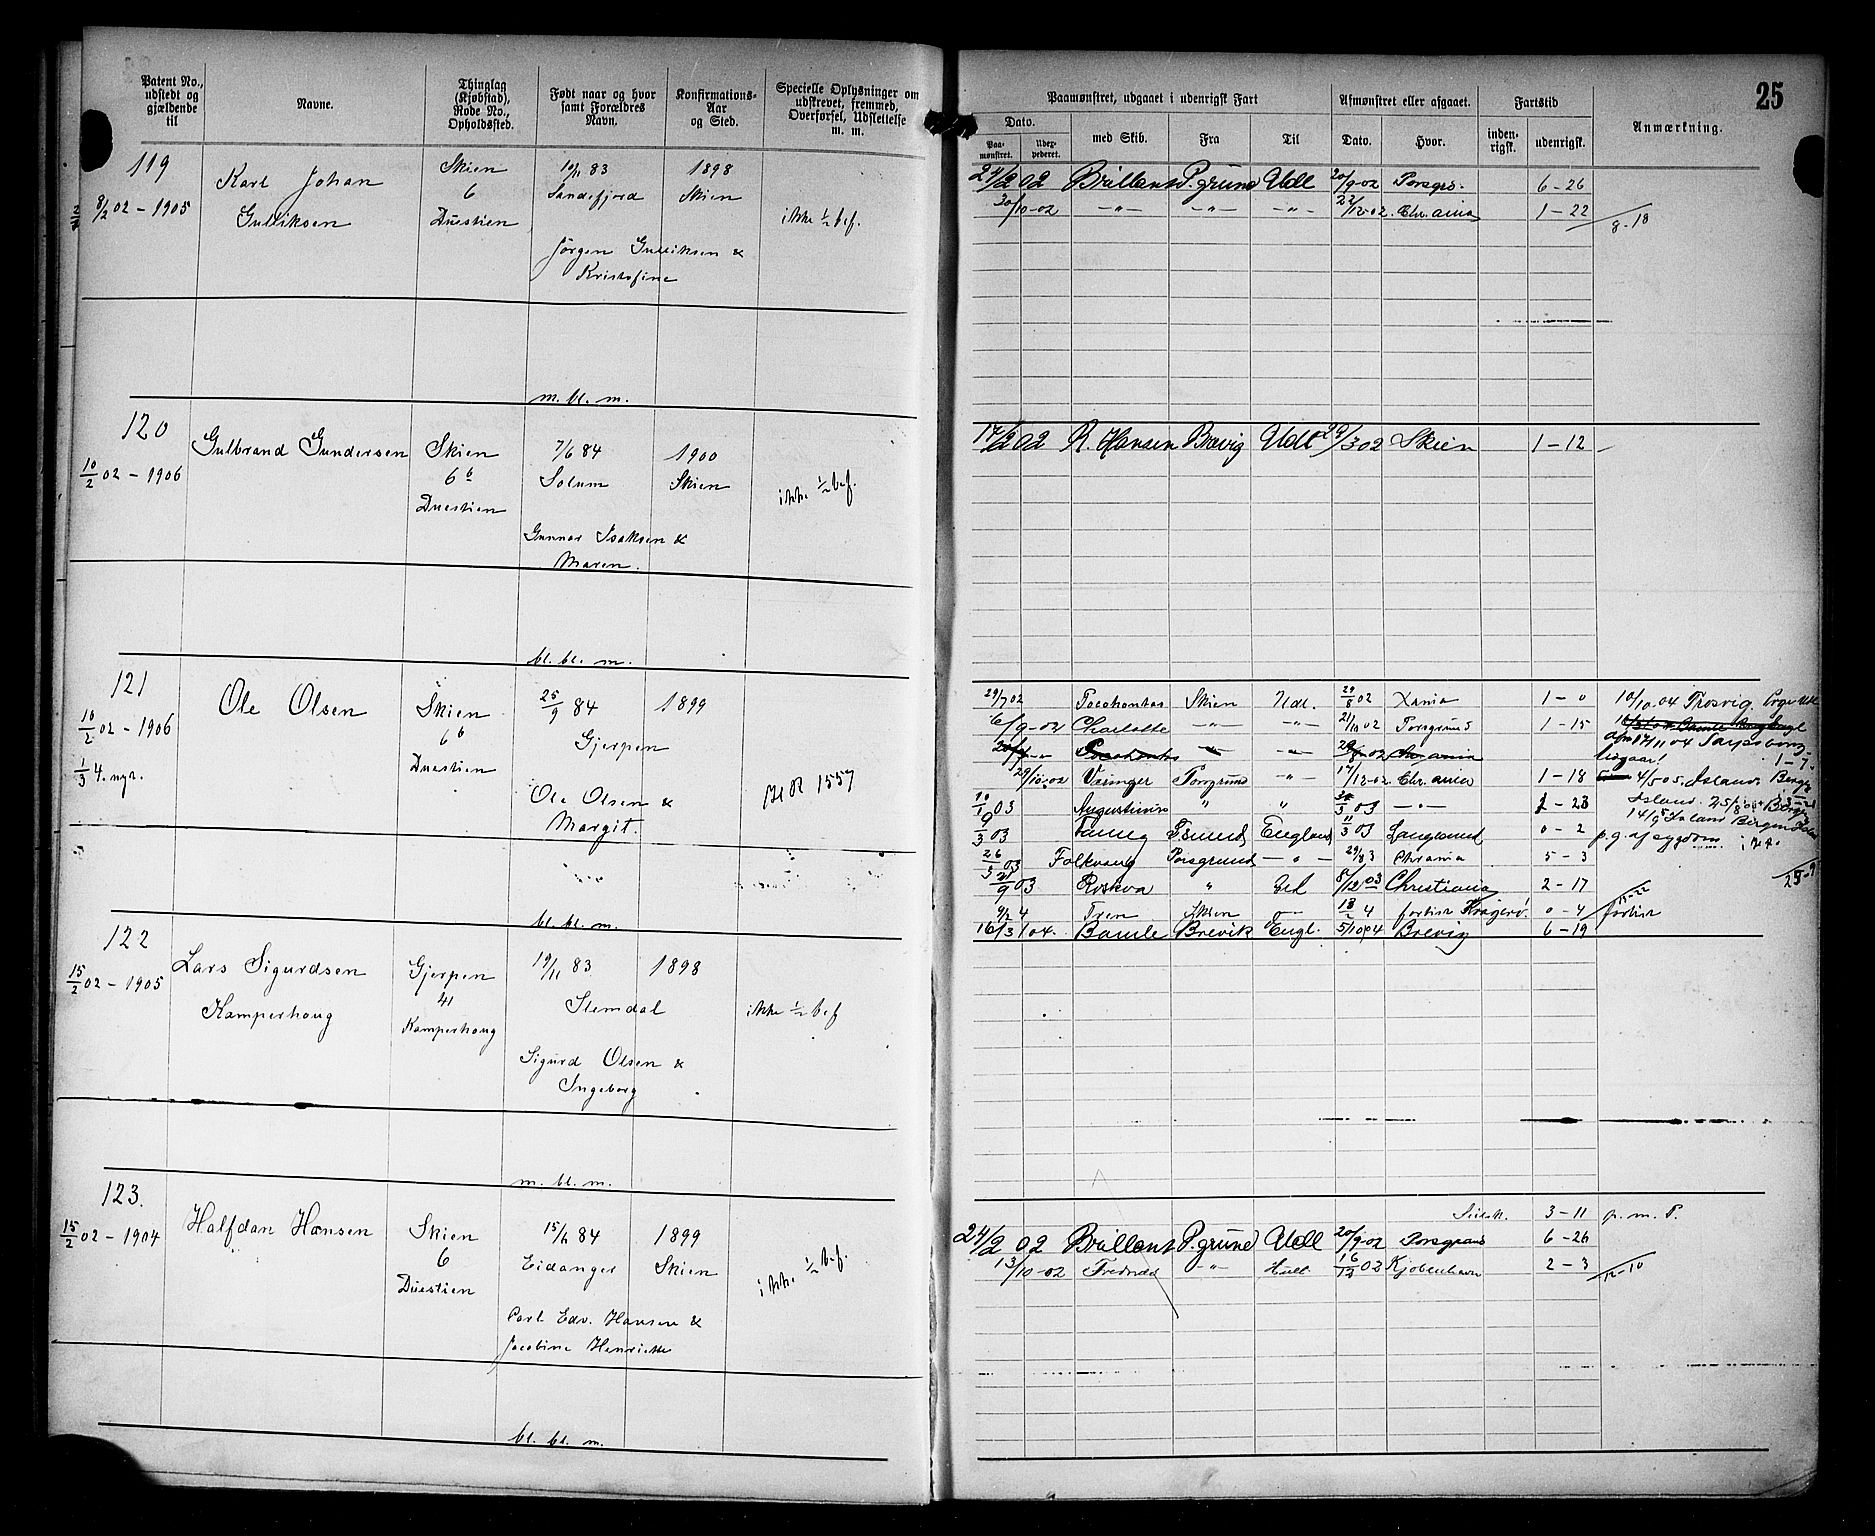 25
Patent No., udstedt og gjældende til
Navne.
Thinglag (Kjøbstad), Rode No., Opholdssted.
Født naar og hvor samt Forældres Navn.
Konfirmations-Aar og Sted.
Specielle Oplysninger om udskrevet, fremmed, Overførsel, Udslettelse m. m.
Paamønstret, udgaaet i udenrigsk Fart
Afmønstret eller afgaaet.
Fartstid
Anmærkning.
Dato.
Paa-mønstret.
med Skib.
Fra
Til
Dato.
Hvor.
inden-rigsk.
udenrigsk.
119
8/2 02 - 1905
Karl Johan
Gulliksen
Skien
6
Duestien
83
Sandefjord
Jörgen Gulliksen &
Kristofine
1898
Skien
ikke 1/2 bef.
24/2 02 Brillant P.grund Udl 20/9-02 Porsgr. 6-26
30/10-02 -"- -"- -"- 22/12-02 Chr.ania 1-22
8-18
m. bl. m.
120
10/2 02 - 1906
Gulbrand Gundersen
Skien
6 b
Duestien
7/6 84
Solum
Gunnar Isaksen &
Maren.
1900
Skien
ikke 1/2 bef.
17/2 02 R. Hansen Brevig Udl 29/3 02 Skien 1-12
bl. bl. m.
121
10/2 02 - 1906
1/3 4. nyr.
Ole Olsen
Skien
6 b
Duestien
25/9 84
Gjerpen
Ole Olsen &
Margit.
1899
1557
29/7 02 Pocahontas Skien Udl. 29/8 02 Xania 1-0
6/9-02 Charlotte -"- -"- 21/10 02 Porsgrund 1-15
Pocahontas -"- -"- Chr.ania
29/10-02 Væringer Porsgrund -"- 17/12-02 Chr.ania 1-18
10/1 03 Augustinus " " 03 -"- 2-23
9/3 03 England 11/3 03 Langesund 0-2
26/5 03 Folkvang Porsgrund -"- 29/8 3 Chrania 5-3
21/9 03 Roskva " Udl 8/12 03 Christiania 2-17
9/2 4 Skien 18/2 4 forlist Kragerø. 0-4 forlist
16/3 04. Bamle Brevik Engl. 5/10 04 Brevig 6-19
10/10.04 Thosvig
17/11 04 Sarpsborg
4/5 05. Island. Bergen
Island.
14/9 Island Bergen
p.g. af sygdom
bl. bl. m.
122
15/2 02 - 1905
Lars Sigurdsen
Kamperhoug
Gjerpen
41
Kamperhoug
19/11 83
Slemdal
Sigurd Olsen &
Ingeborg
1898
ikke 1/2 bef
m. bl. m.
123.
15/2 02 - 1904
Halfdan Hansen
Skien
6
Duestien
84
Eidanger
Carl Edv. Hansen &
Jacobine Henriette
1899
Skien
ikke 1/2 bef.
3-11 p. m. P.
24/2 02 Brillant P.grund Udl 20/9-02 Porsgrund 6-26
13/10-02 -"- Hull 16/12 02 Kjöbenhavn 2-3
12-10
bl. bl. m.